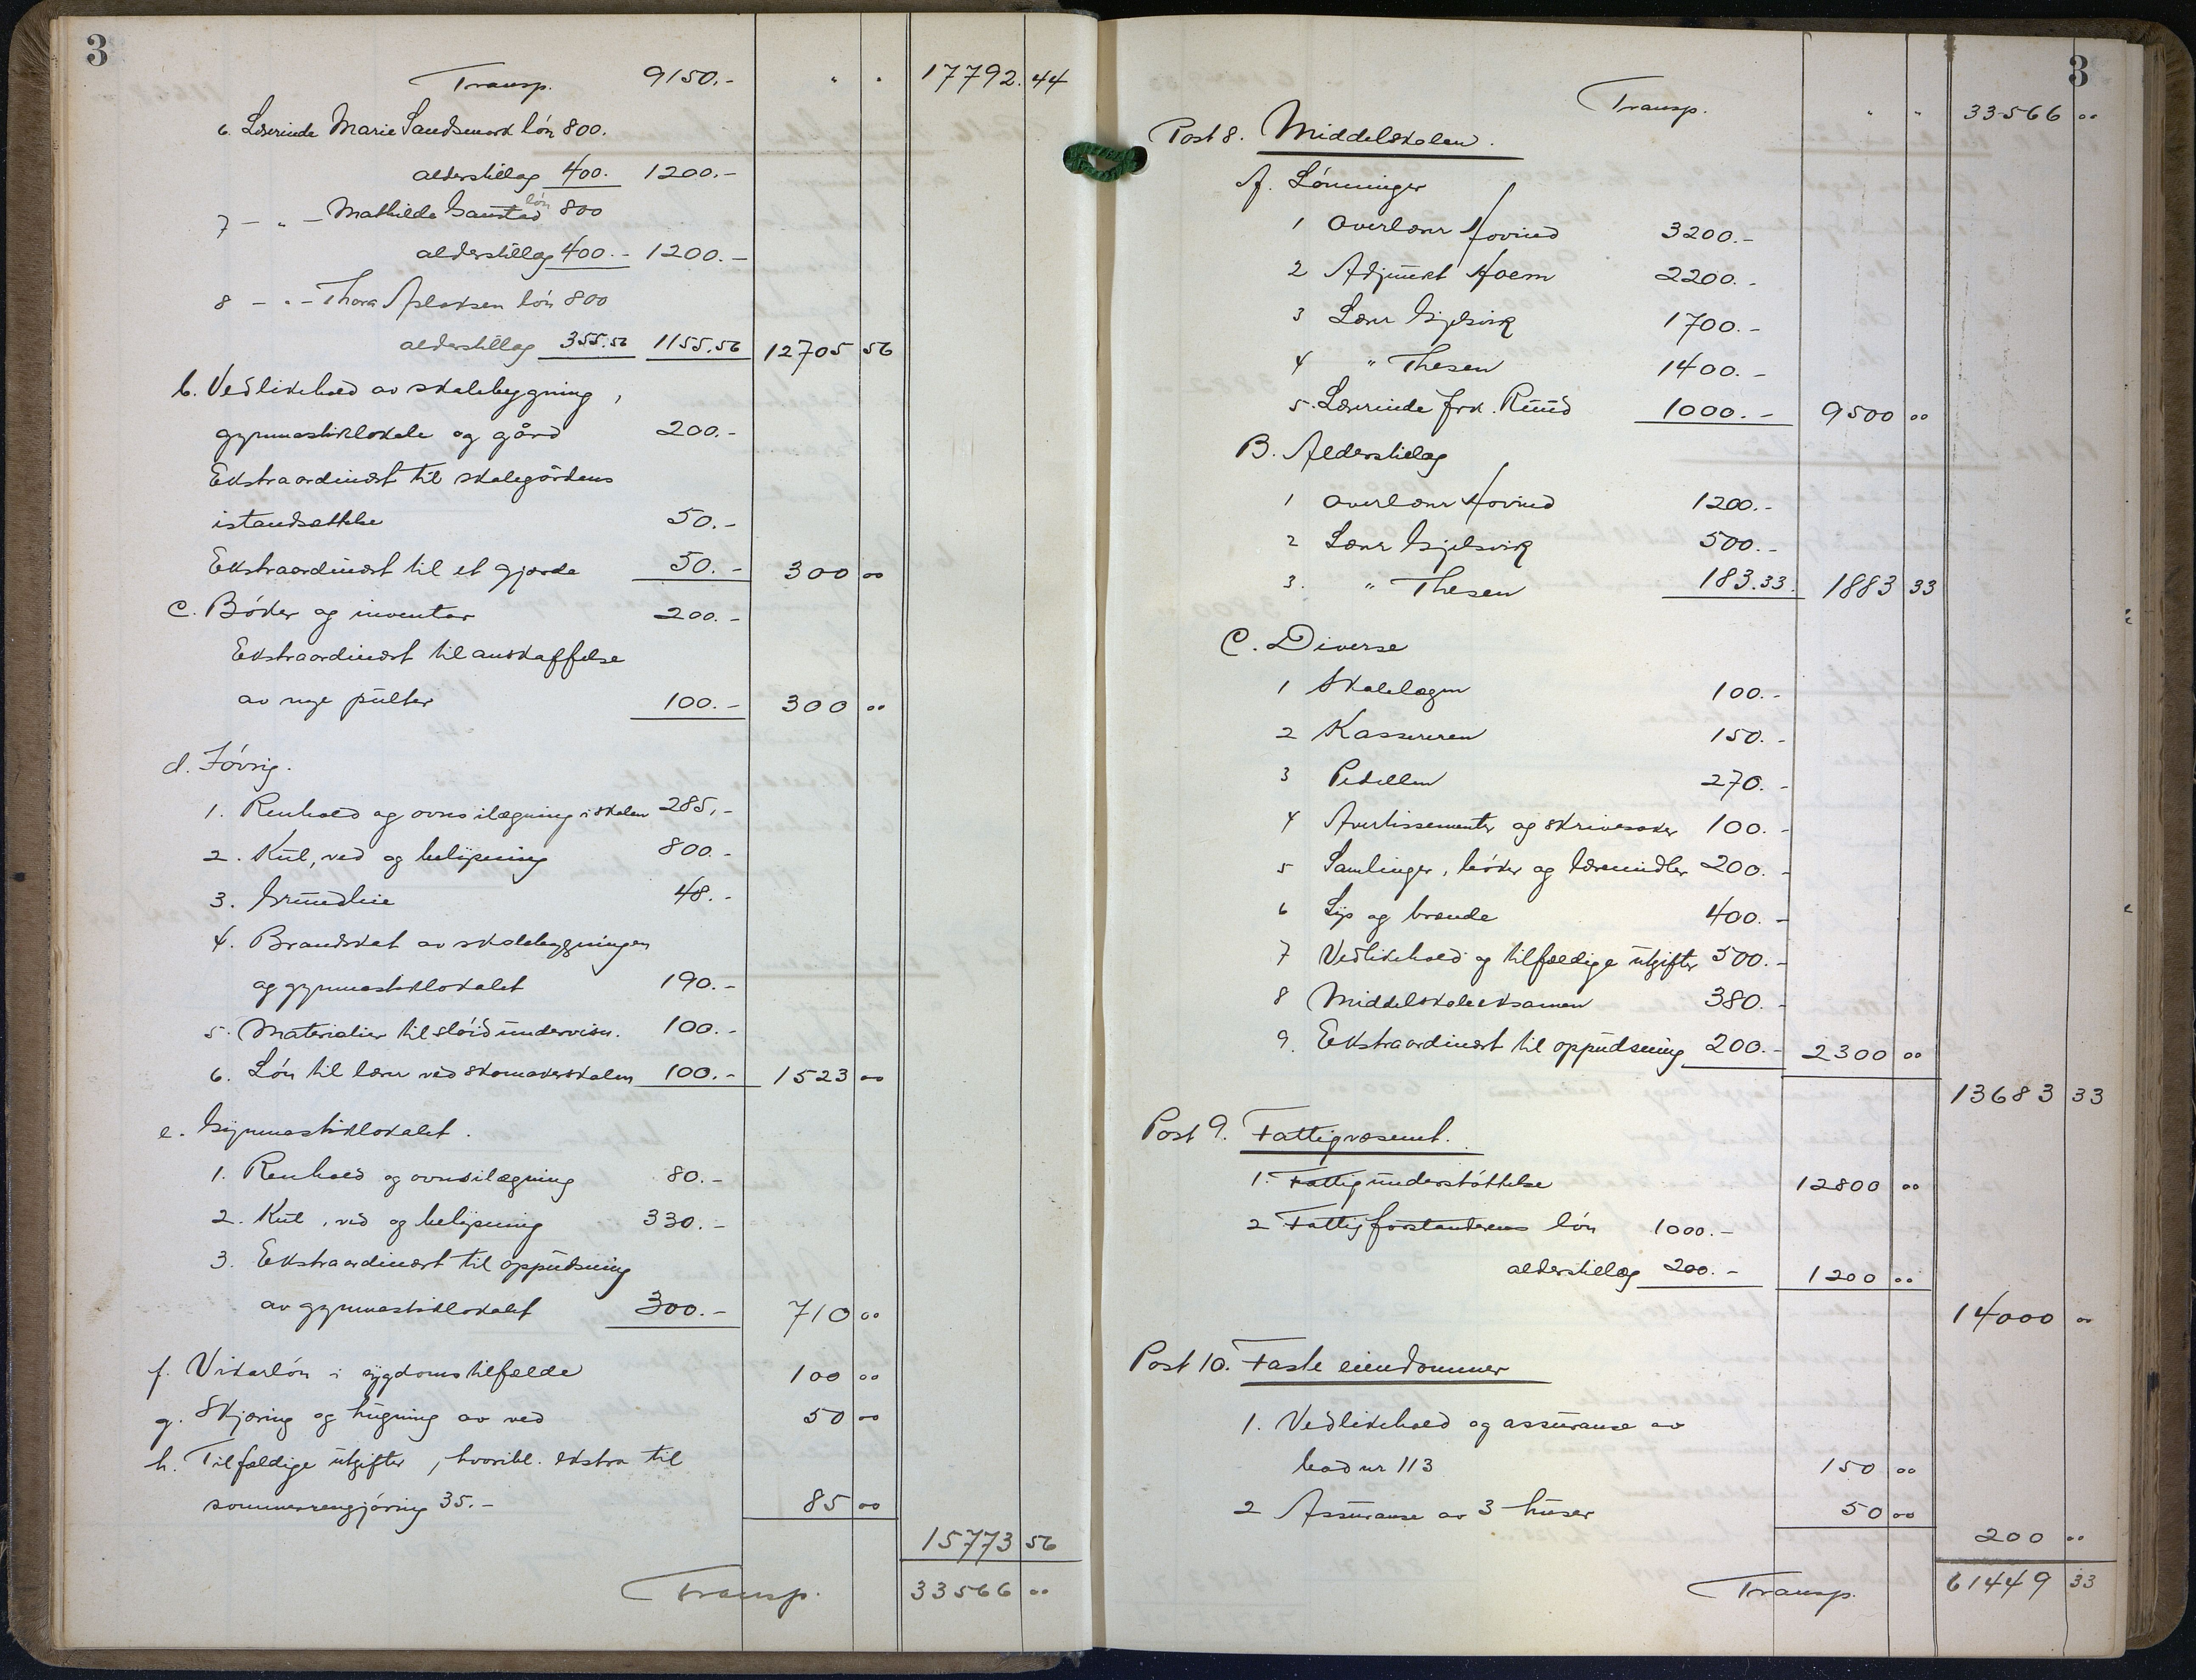 3
Transp. 9150.- " " 17792.44
6. Lærerinde Marie Sandsmark løn 800.
alderstillæg 400. 1200.-
7 - " - Mathilde løn 800
alderstillæg 400.- 1200.-
8 - " - Thora løn 800
alderstillæg 355.56 1155.56 12705 56
b. Vedlikehold av skolebygning,
gymnastiklokale og gård 200.-
Ekstraordinært til skolegårdens
istandsættelse 50.-
Ekstraordinært til et gjærde 50.- 300 00
c. Bøker og inventar 200.-
Ekstraordinært til anskaffelse
av nye pulter 100.- 300 00
d. Iøvrig.
1. Renhold og ovnsilægning i skolen 285,-
2. Kul, ved og belysning 800.-
3. Grundleie 48.-
4. Brandskat av skolebygningen
og gymnastiklokalet 190.-
5. Materialier til sløidundervisn. 100.-
6. Løn til lærer ved skomakerskolen 100.- 1523 00
e. Gymnastiklokalet.
1. Renhold og ovnsilægning 80.-
2. Kul, ved og belysning 330.-
3. Ekstraordinært til oppudsning
av gymnastiklokalet 300.- 710 00
f. Vikarløn i sygdomstilfælde 100 00
g. Skjæring og hugning av ved 50 00
h. Tilfældige utgifter, hvoribl. ekstra til
sommerrengjøring 35.- 85 00
15773 56
Transp. 33566 00
3
Transp. " " 33566 00
Post 8. Middelskolen.
A. Lønninger
1 Overlærer Hovind 3200.-
2 Adjunkt Hoem 2200.-
3 Lærer Gjelsvik 1700.-
4 " Thesen 1400.-
5. Lærerinde frk. Ruud 1000.- 9500 00
B. Alderstillæg
1 Overlærer Hovind 1200.-
2 Lærer Gjelsvik 500.-
3. " Thesen 183.33. 1883 33
C. Diverse
1 Skolelægen 100.-
2 Kassereren 150.-
3 Pedellen 270.-
4 Avertissementer og skrivesaker 100.-
5 Samlinger, bøker og læremidler 200.-
6 Lys og brænde 400.-
7 Vedlikehold og tilfældige utgifter 500.-
8 Middelskoleeksamen 380.-
9. Ekstraordinært til oppudsning 200.- 2300 00
13683 33
Post 9. Fattigvæsenet.
1. Fattigunderstøttelse 12800 00
2 Fattigforstanderens løn 1000.-
alderstillæg 200.- 1200 00
14000 00
Post 10. Faste eiendommer
1. Vedlikehold og assuranse av
bod nr 113 150 00
2 Assuranse av 3 huser 50 00
200 00
Transp. 61449 33